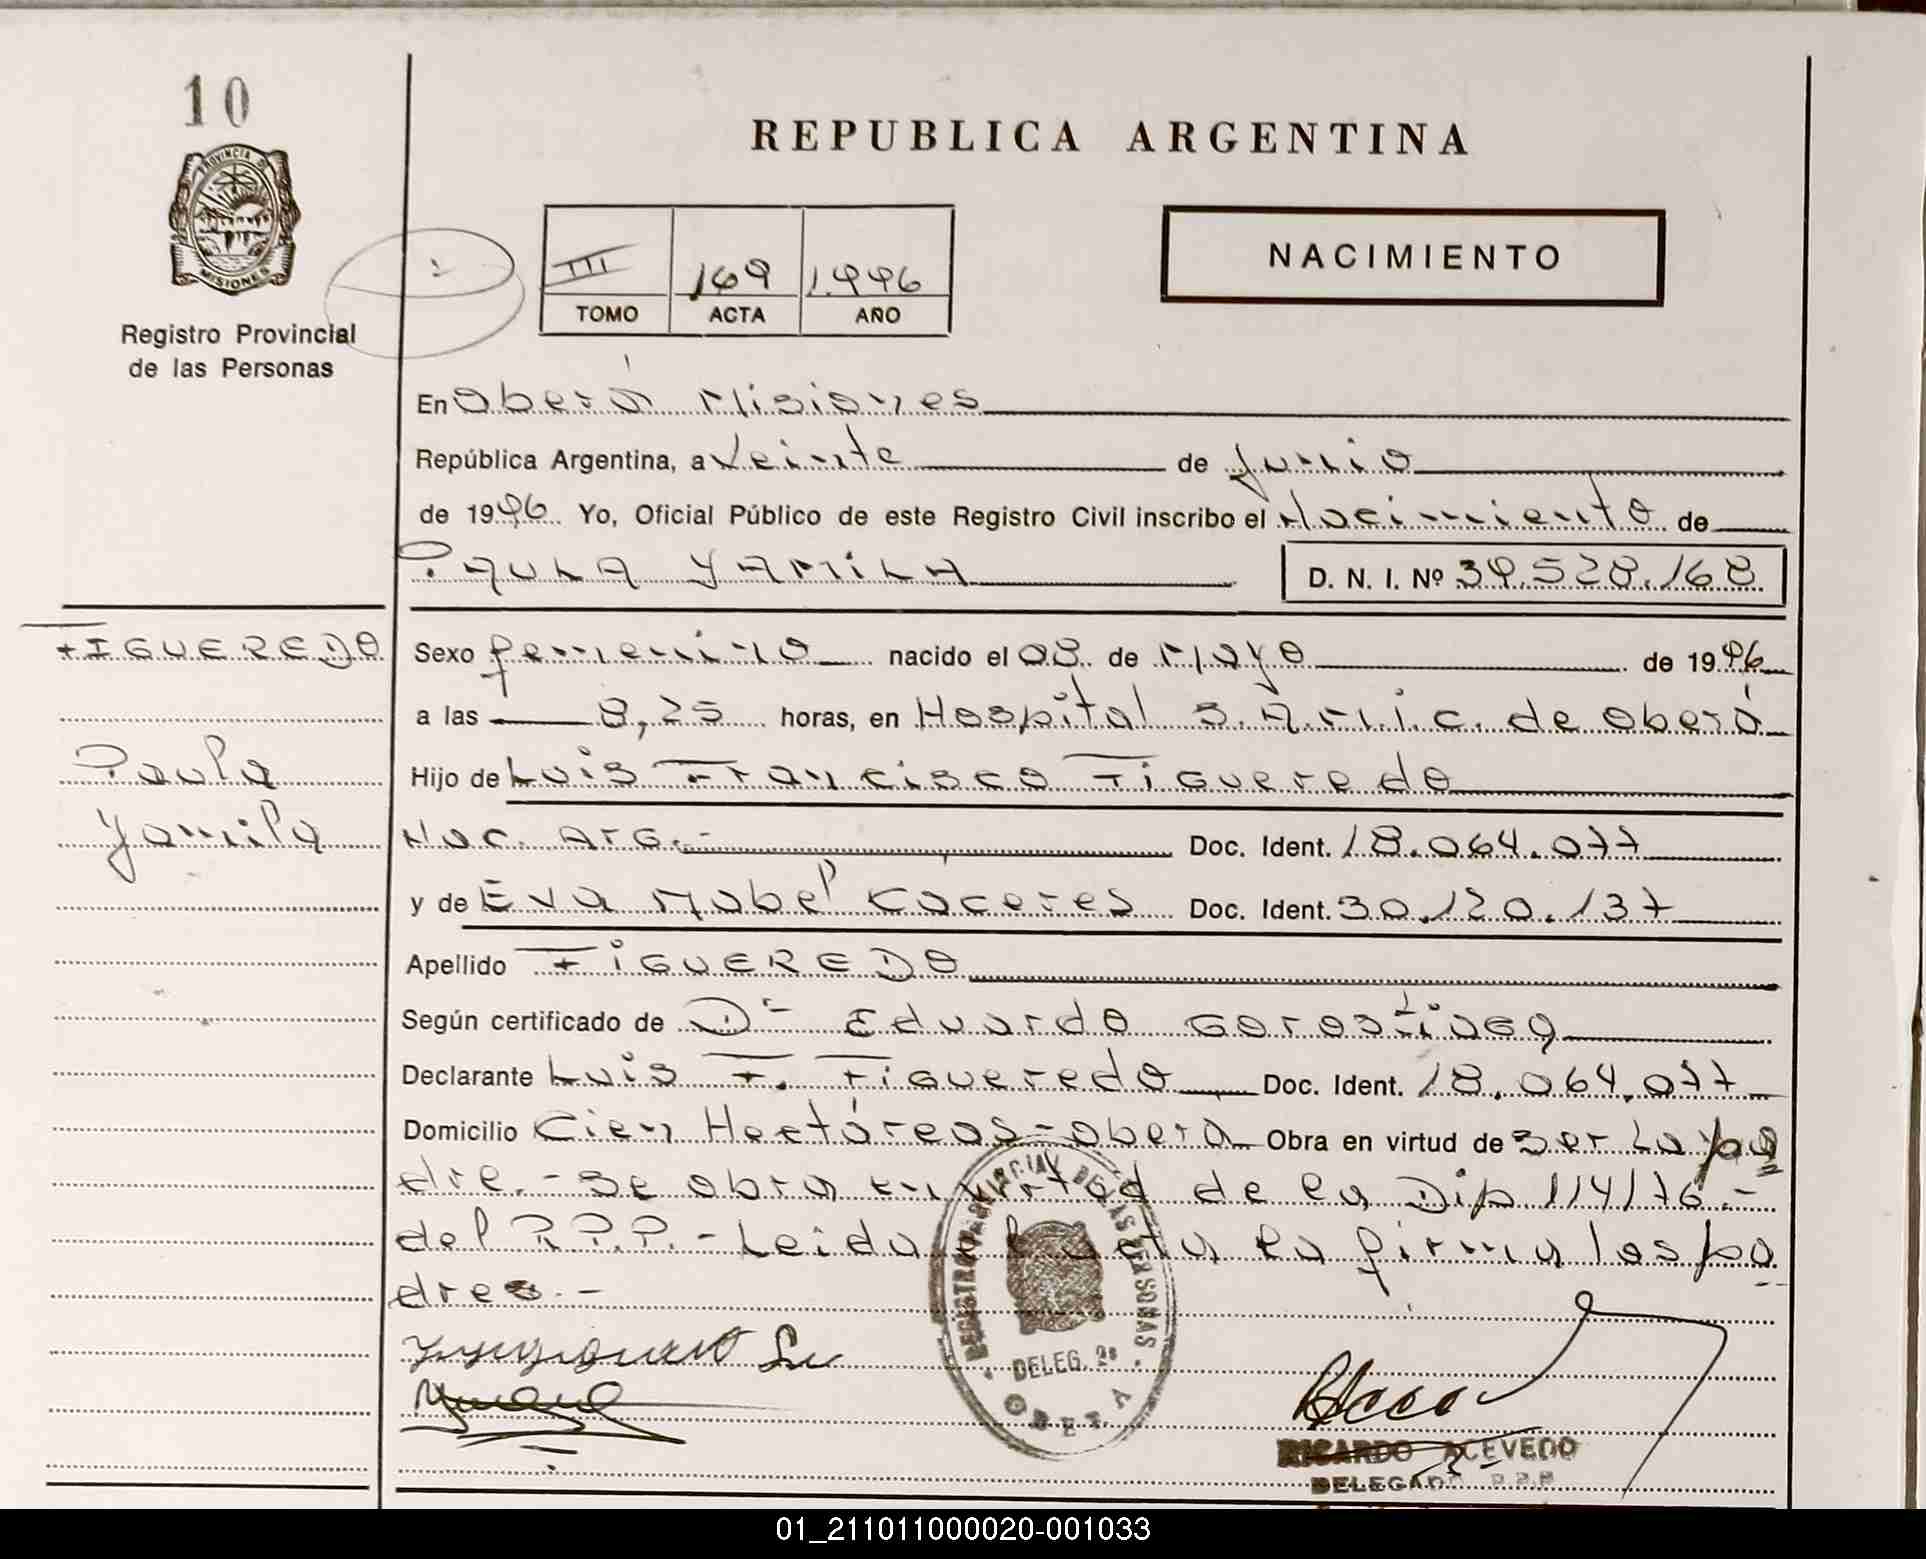 10
REPUBLICA ARGENTINA
PROVINCIA DE
MISIONES
Registro Provincial
de las Personas
III 169 1.996
TOMO ACTA AÑO
NACIMIENTO
En Oberá Misiones
República Argentina, a Veinte de Junio
de 1996. Yo, Oficial Público de este Registro Civil inscribo el Nacimiento de
PAULA YAMILA D. N. I. Nº 39.528.168
FIGUEREDO
Paula
Yamila
Sexo femenino nacido el 08 de Mayo de 1996
a las 8,25 horas, en Hospital S.A.M.I.C. de Oberá
Hijo de Luis Francisco Figueredo
Nac. Arg.- Doc. Ident. 18.064.077
y de Eva Mabel Caceres Doc. Ident. 30.120.137
Apellido FIGUEREDO
Según certificado de Dr Eduardo Gorostiaga
Declarante Luis F. Figueredo Doc. Ident. 18.064.077
Domicilio Cien Hectáreas-Oberá Obra en virtud de ser La pa
dre.- Se obra en virtud de la Dip 114/76.-
del R.P.P.- Leida el acta la firma los pa
dres.-
REGISTRO PROVINCIAL DE LAS PERSONAS
DELEG. 2ª
OBERA
RICARDO ACEVEDO
DELEGADO R.P.P
01_211011000020-001033